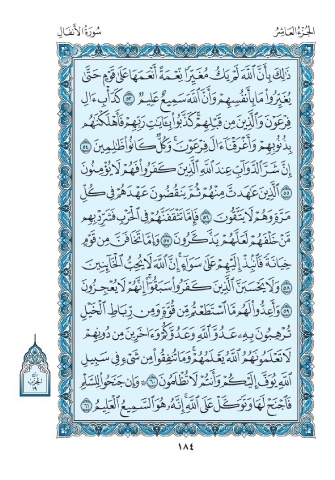 الجزء العاشر
سورة الأنفال
ذَٰلِكَ بِأَنَّ ٱللَّهَ لَمْ يَكُ مُغَيِّرًا نِّعْمَةً أَنْعَمَهَا عَلَىٰ قَوْمٍ حَتَّىٰ
يُغَيِّرُوا۟ مَا بِأَنفُسِهِمْ وَأَنَّ ٱللَّهَ سَمِيعٌ عَلِيمٌ ٥٣ كَدَأْبِ ءَالِ
فِرْعَوْنَ وَٱلَّذِينَ مِن قَبْلِهِمْ كَذَّبُوا۟ بِـَٔايَـٰتِ رَبِّهِمْ فَأَهْلَكْنَـٰهُم
بِذُنُوبِهِمْ وَأَغْرَقْنَآ ءَالَ فِرْعَوْنَ وَكُلٌّ كَانُوا۟ ظَـٰلِمِينَ ٥٤
إِنَّ شَرَّ ٱلدَّوَآبِّ عِندَ ٱللَّهِ ٱلَّذِينَ كَفَرُوا۟ فَهُمْ لَا يُؤْمِنُونَ
٥٥ ٱلَّذِينَ عَـٰهَدتَّ مِنْهُمْ ثُمَّ يَنقُضُونَ عَهْدَهُمْ فِى كُلِّ
مَرَّةٍ وَهُمْ لَا يَتَّقُونَ ٥٦ فَإِمَّا تَثْقَفَنَّهُمْ فِى ٱلْحَرْبِ فَشَرِّدْ بِهِم
مَّنْ خَلْفَهُمْ لَعَلَّهُمْ يَذَّكَّرُونَ ٥٧ وَإِمَّا تَخَافَنَّ مِن قَوْمٍ
خِيَانَةً فَٱنۢبِذْ إِلَيْهِمْ عَلَىٰ سَوَآءٍ إِنَّ ٱللَّهَ لَا يُحِبُّ ٱلْخَآئِنِينَ
٥٨ وَلَا يَحْسَبَنَّ ٱلَّذِينَ كَفَرُوا۟ سَبَقُوٓا۟ إِنَّهُمْ لَا يُعْجِزُونَ
٥٩ وَأَعِدُّوا۟ لَهُم مَّا ٱسْتَطَعْتُم مِّن قُوَّةٍ وَمِن رِّبَاطِ ٱلْخَيْلِ
تُرْهِبُونَ بِهِۦ عَدُوَّ ٱللَّهِ وَعَدُوَّكُمْ وَءَاخَرِينَ مِن دُونِهِمْ
لَا تَعْلَمُونَهُمُ ٱللَّهُ يَعْلَمُهُمْ وَمَا تُنفِقُوا۟ مِن شَىْءٍ فِى سَبِيلِ
ٱللَّهِ يُوَفَّ إِلَيْكُمْ وَأَنتُمْ لَا تُظْلَمُونَ ٦٠ وَإِن جَنَحُوا۟ لِلسَّلْمِ
فَٱجْنَحْ لَهَا وَتَوَكَّلْ عَلَى ٱللَّهِ إِنَّهُۥ هُوَ ٱلسَّمِيعُ ٱلْعَلِيمُ ٦١
الحزب
١٩
١٨٤